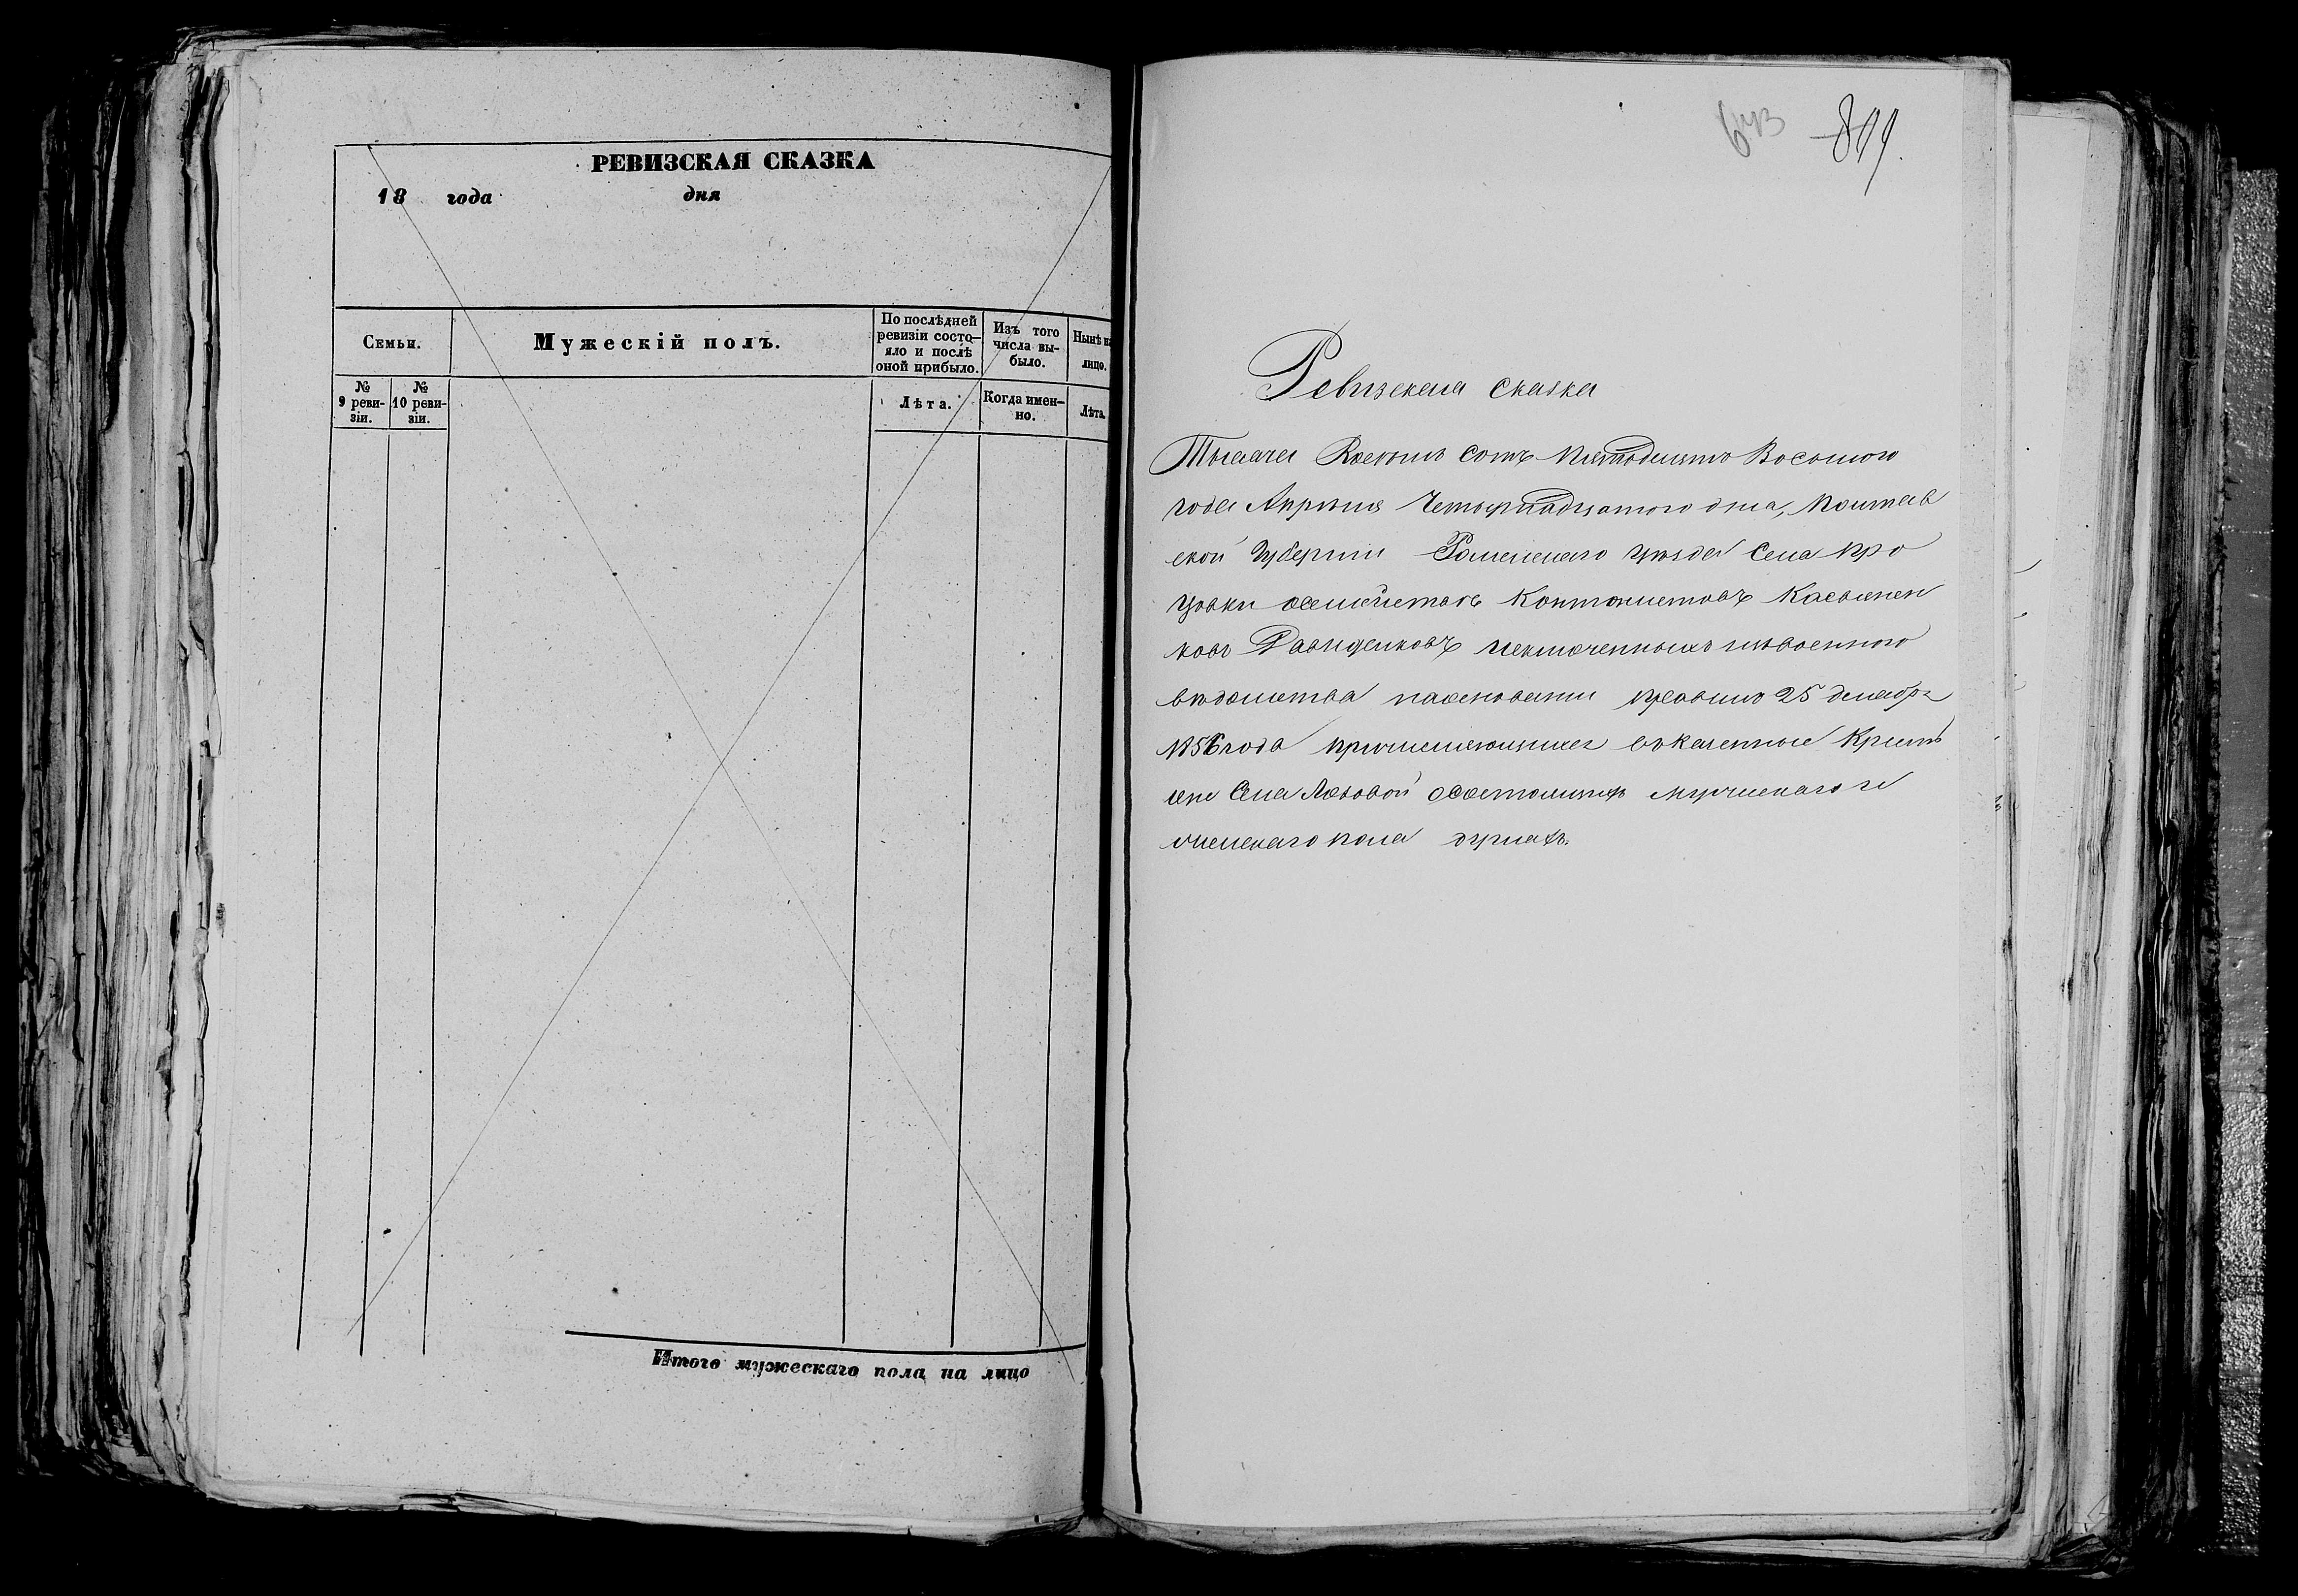 РЕВИЗСКАЯ СКАЗКА
18 года дня
Семьи.
Мужескій полъ.
По послѣдней ревизіи состо- яло и послѣ оной прибыло.
Изъ того числа вы- было.
Нынѣ на лицо.
№ 9 реви- зіи.
№ 10 реви- зіи.
Лѣта.
Когда имен- но.
Лѣта.
Итого мужескаго пола на лицо
643 819.
Ревизская сказка
Тысяча Восемь сотъ пятдесятъ Восьмого
года Апрѣля Четырнадцатого дня, Полтав
ской Губерніи Роменскаго уѣзда Села Про
цовки семействъ Кантонистовъ Касьянен
ковъ Давиденковъ исключенныхъ изъ военного
вѣдомства наосновании правилъ 25 декабря
1856 года причисляющихся въ казенные Крестья
не Села Лозовой осостоящихъ мужескаго и
женскаго пола душахъ.